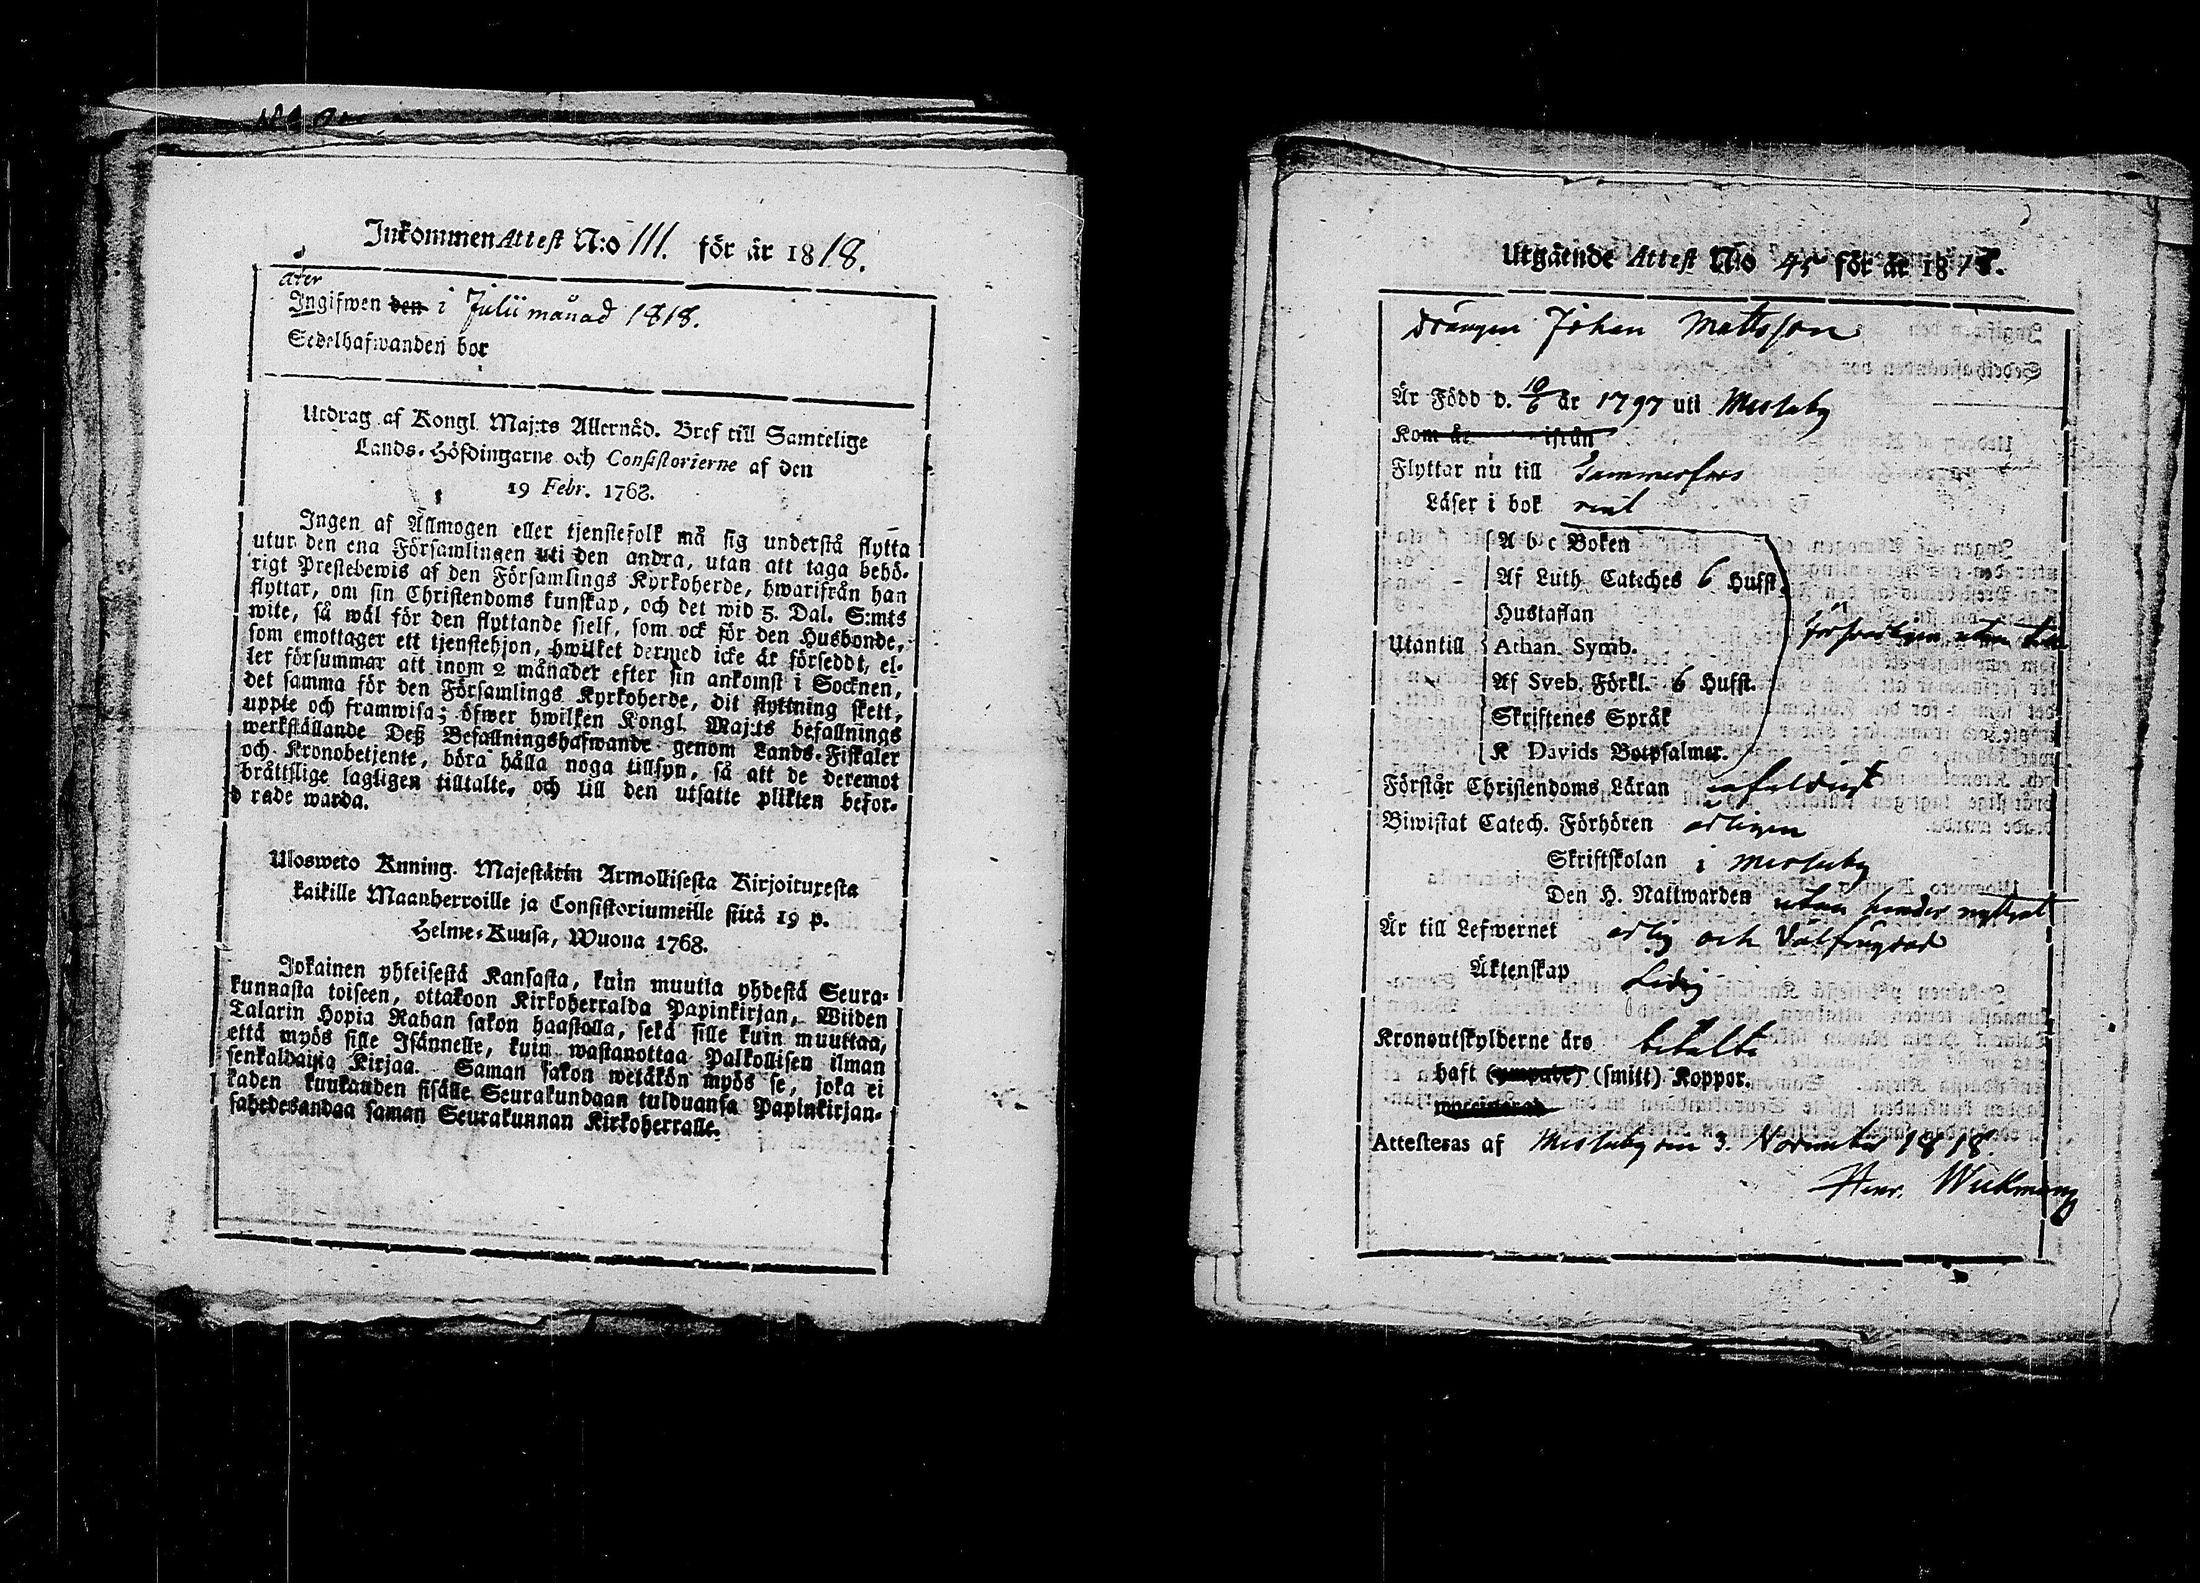 Inkommen Attest N:o 111. för år 1818.
åter
Ingifwen den i Julii månad 1818.
Sedelhafwanden bor
Utdrag af Kongl. Maj:ts Allernåd. Bref till Samtelige
Lands-Höfdingarne och Consistorierne af den
19 Febr. 1768.
Ingen af Allmogen eller tjenstefolk må sig understå flytta
utur den ena Församlingen uti den andra, utan att taga behö-
rigt Prestebewis af den Församlings Kyrkoherde, hwarifrån han
flyttar, om sin Christendoms kunskap, och det wid 5. Dal. S:mts
wite, så wäl för den flyttande sjelf, som ock för den Husbonde,
som emottager ett tjenstehjon, hwilket dermed icke är försedt, el-
ler försummar att inom 2 månader efter sin ankomst i Socknen,
det samma för den Församlings Kyrkoherde, dit flyttning skett,
uppte och framwisa; öfwer hwilken Kongl. Maj:ts befallnings
werkställande Deß Befallningshafwande genom Lands-Fiskaler
och Kronobetjente, böra hålla noga tillsyn, så att de deremot
bråttslige lagligen tilltalte, och till den utsatte plikten befor-
drade warda.
Ulosweto Kuning. Majestätin Armollisesta Kirjoituxesta
kaikille Maanherroille ja Consistoriumeille siitä 19 p.
Helme-Kuusa, Wuona 1768.
Jokainen yhteisestä Kansasta, kuin muutta yhdestä Seura-
kunnasta toiseen, ottakoon Kirkoherralda Papinkirjan, Wiiden
Talarin Hopia Rahan sakon haastolla, sekä sille kuin muuttaa,
että myös sille Isännelle, kuin wastanottaa Palkollisen ilman
senkaldaista Kirjaa. Saman sakon wetäkön myös se, joka ei
kaden kuukauden sisälle Seurakundaan tulduansa Papinkirjan-
sa edesandaa saman Seurakunnan Kirkoherralle.
Utgående Attest N:o 45 för år 1818.
Drängen Johan Mattsson
Är Född d. 10/6 år 1797 uti Messuby
Kom år ifrån
Flyttar nu till Tammerfors
Läser i bok rent
A b c Boken
Af Luth. Cateches 6 Hufst.
Hustaflan
Utantill Athan. Symb. försvarligen utan till
Af Sveb. Förkl. 6 Hufst.
Skriftenes Språk
K Davids Botpsalmer.
Förstår Christendoms Läran enfaldigt
Biwistat Catech. Förhören årligen
Skriftskolan i Messuby
Den H. Nattwarden utan hinder nyttjat
Är till Lefwernet ärlig och Välfrägdad
Äktenskap Ledig
Kronoutskylderne äro betalte
haft (ympade) (smitt) Koppor.
vaccinerad
Attesteras af Messuby den 3. November 1818.
Henr. Wickman